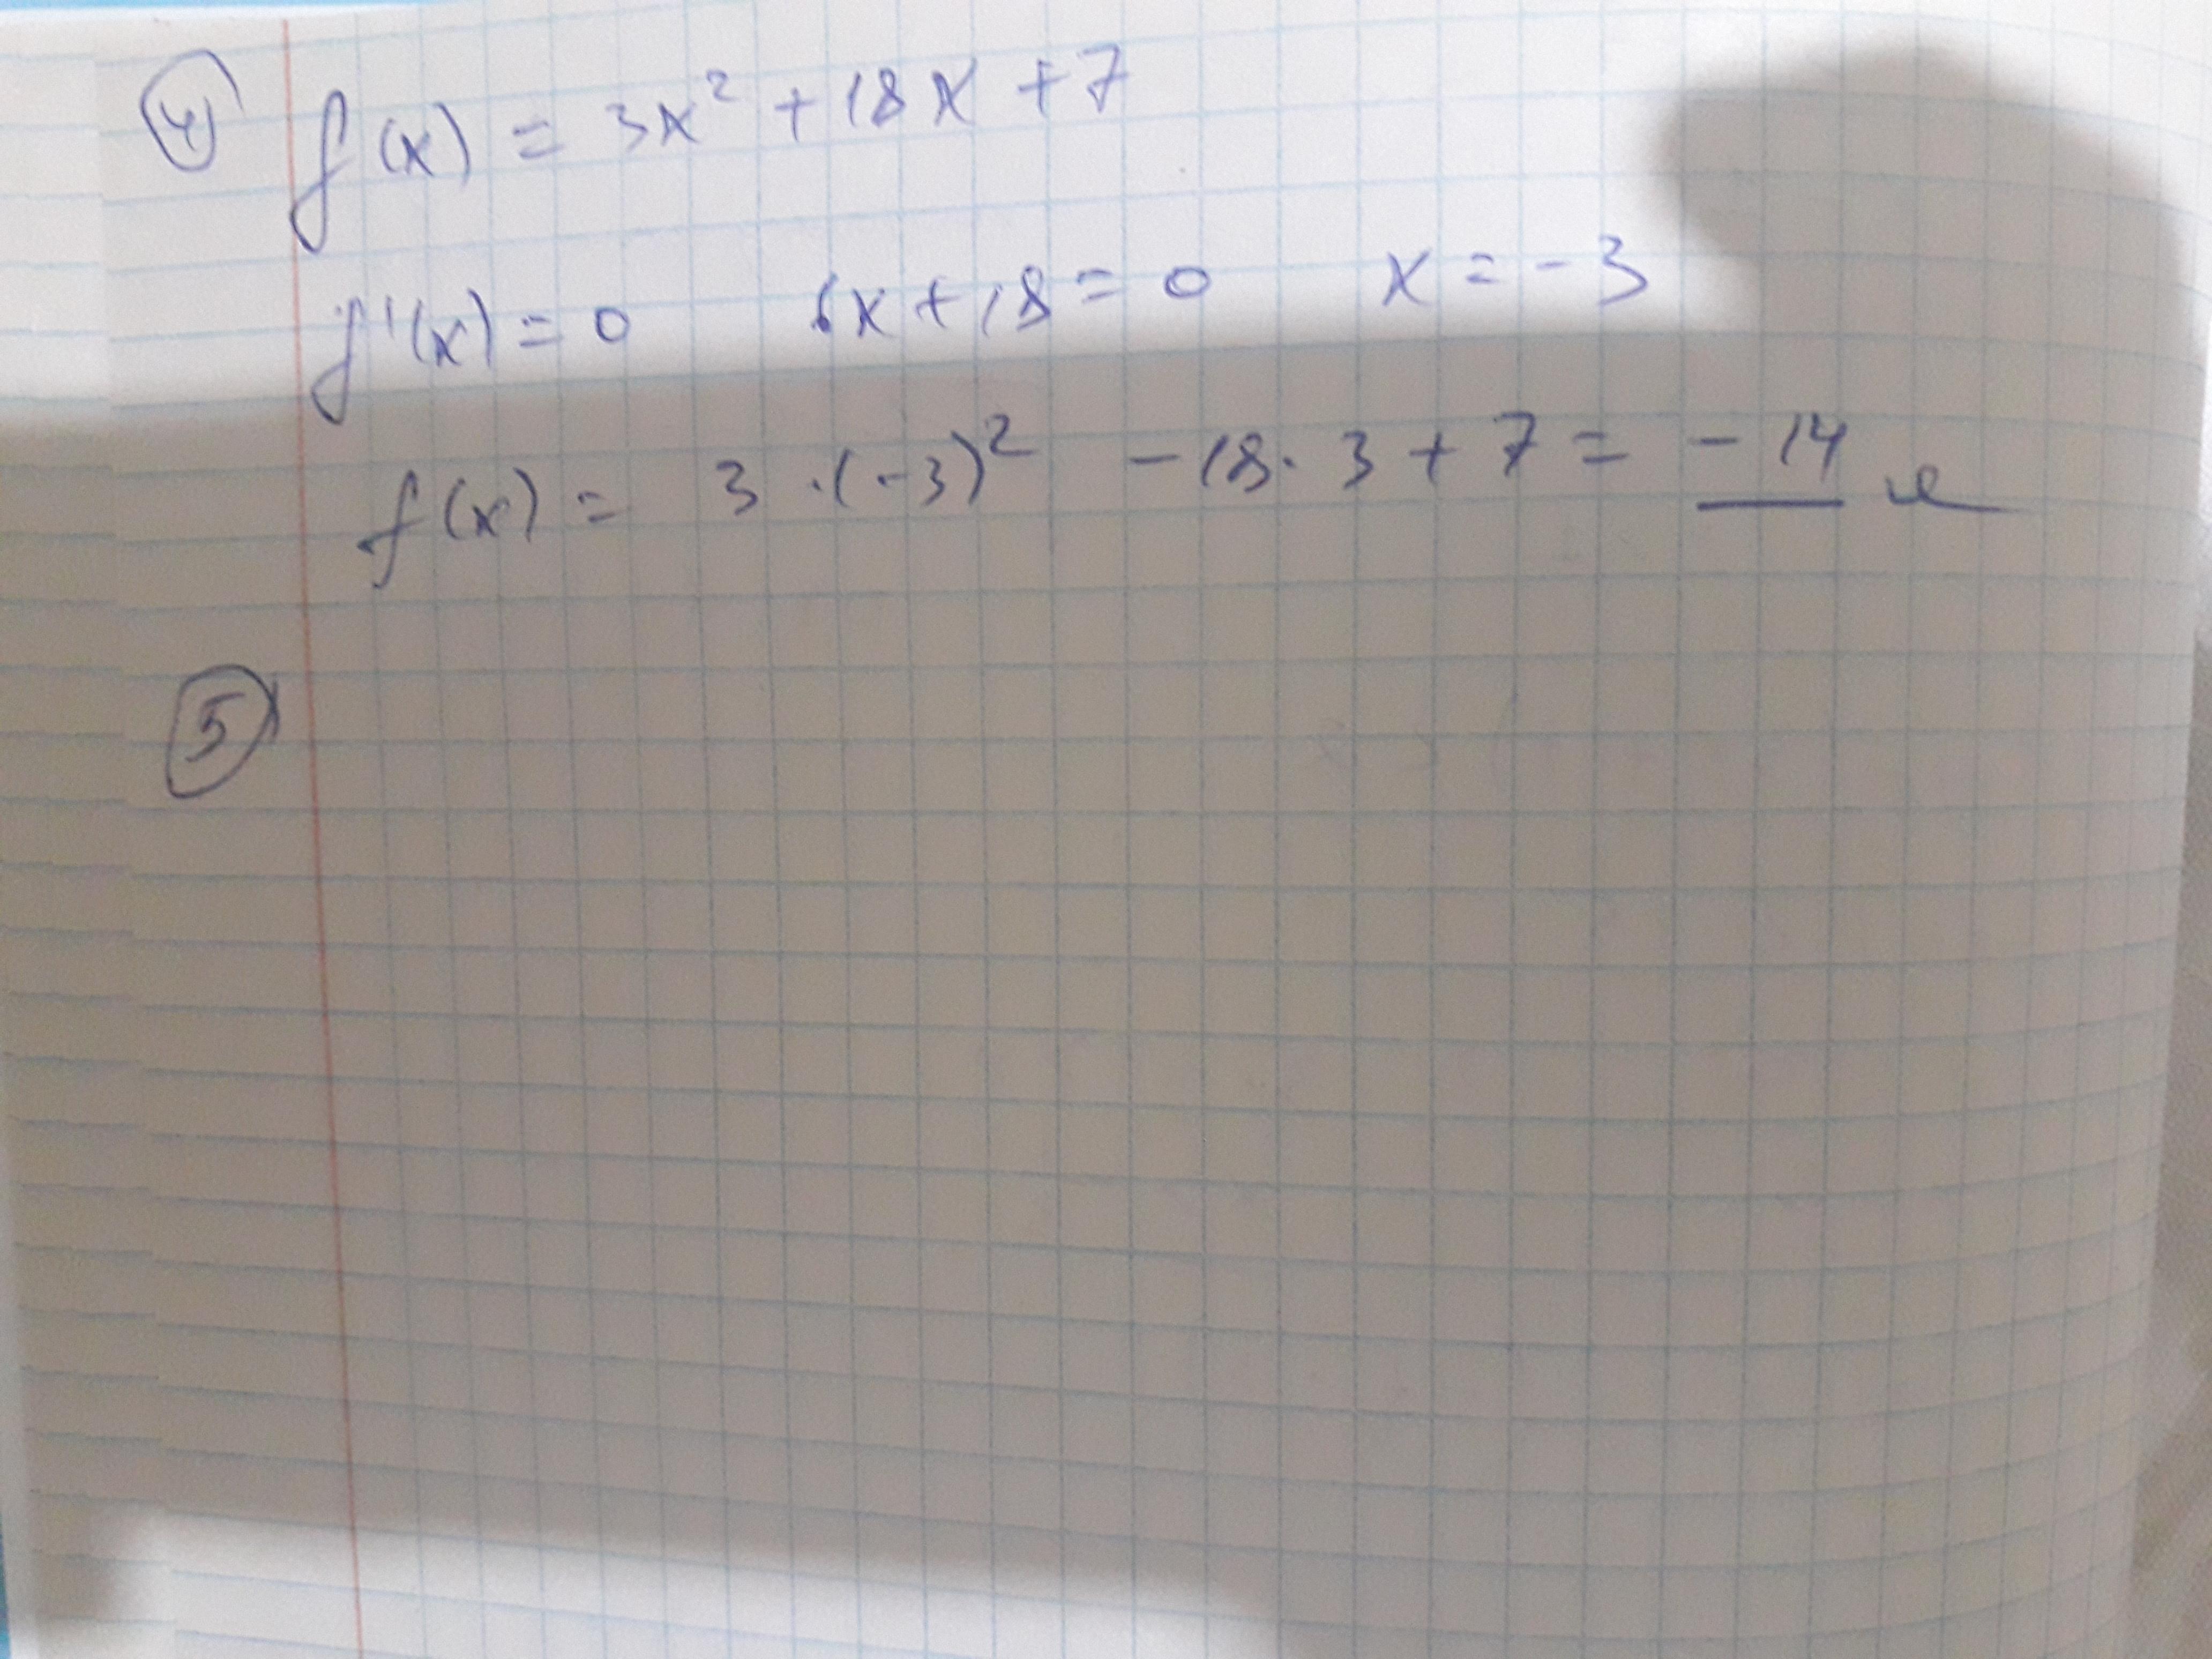 4 f(x) = 3x² + 18x + 7
f'(x) = 0 6x + 18 = 0 x = -3
f(x) = 3 · (-3)² - 18 · 3 + 7 = - 14
5